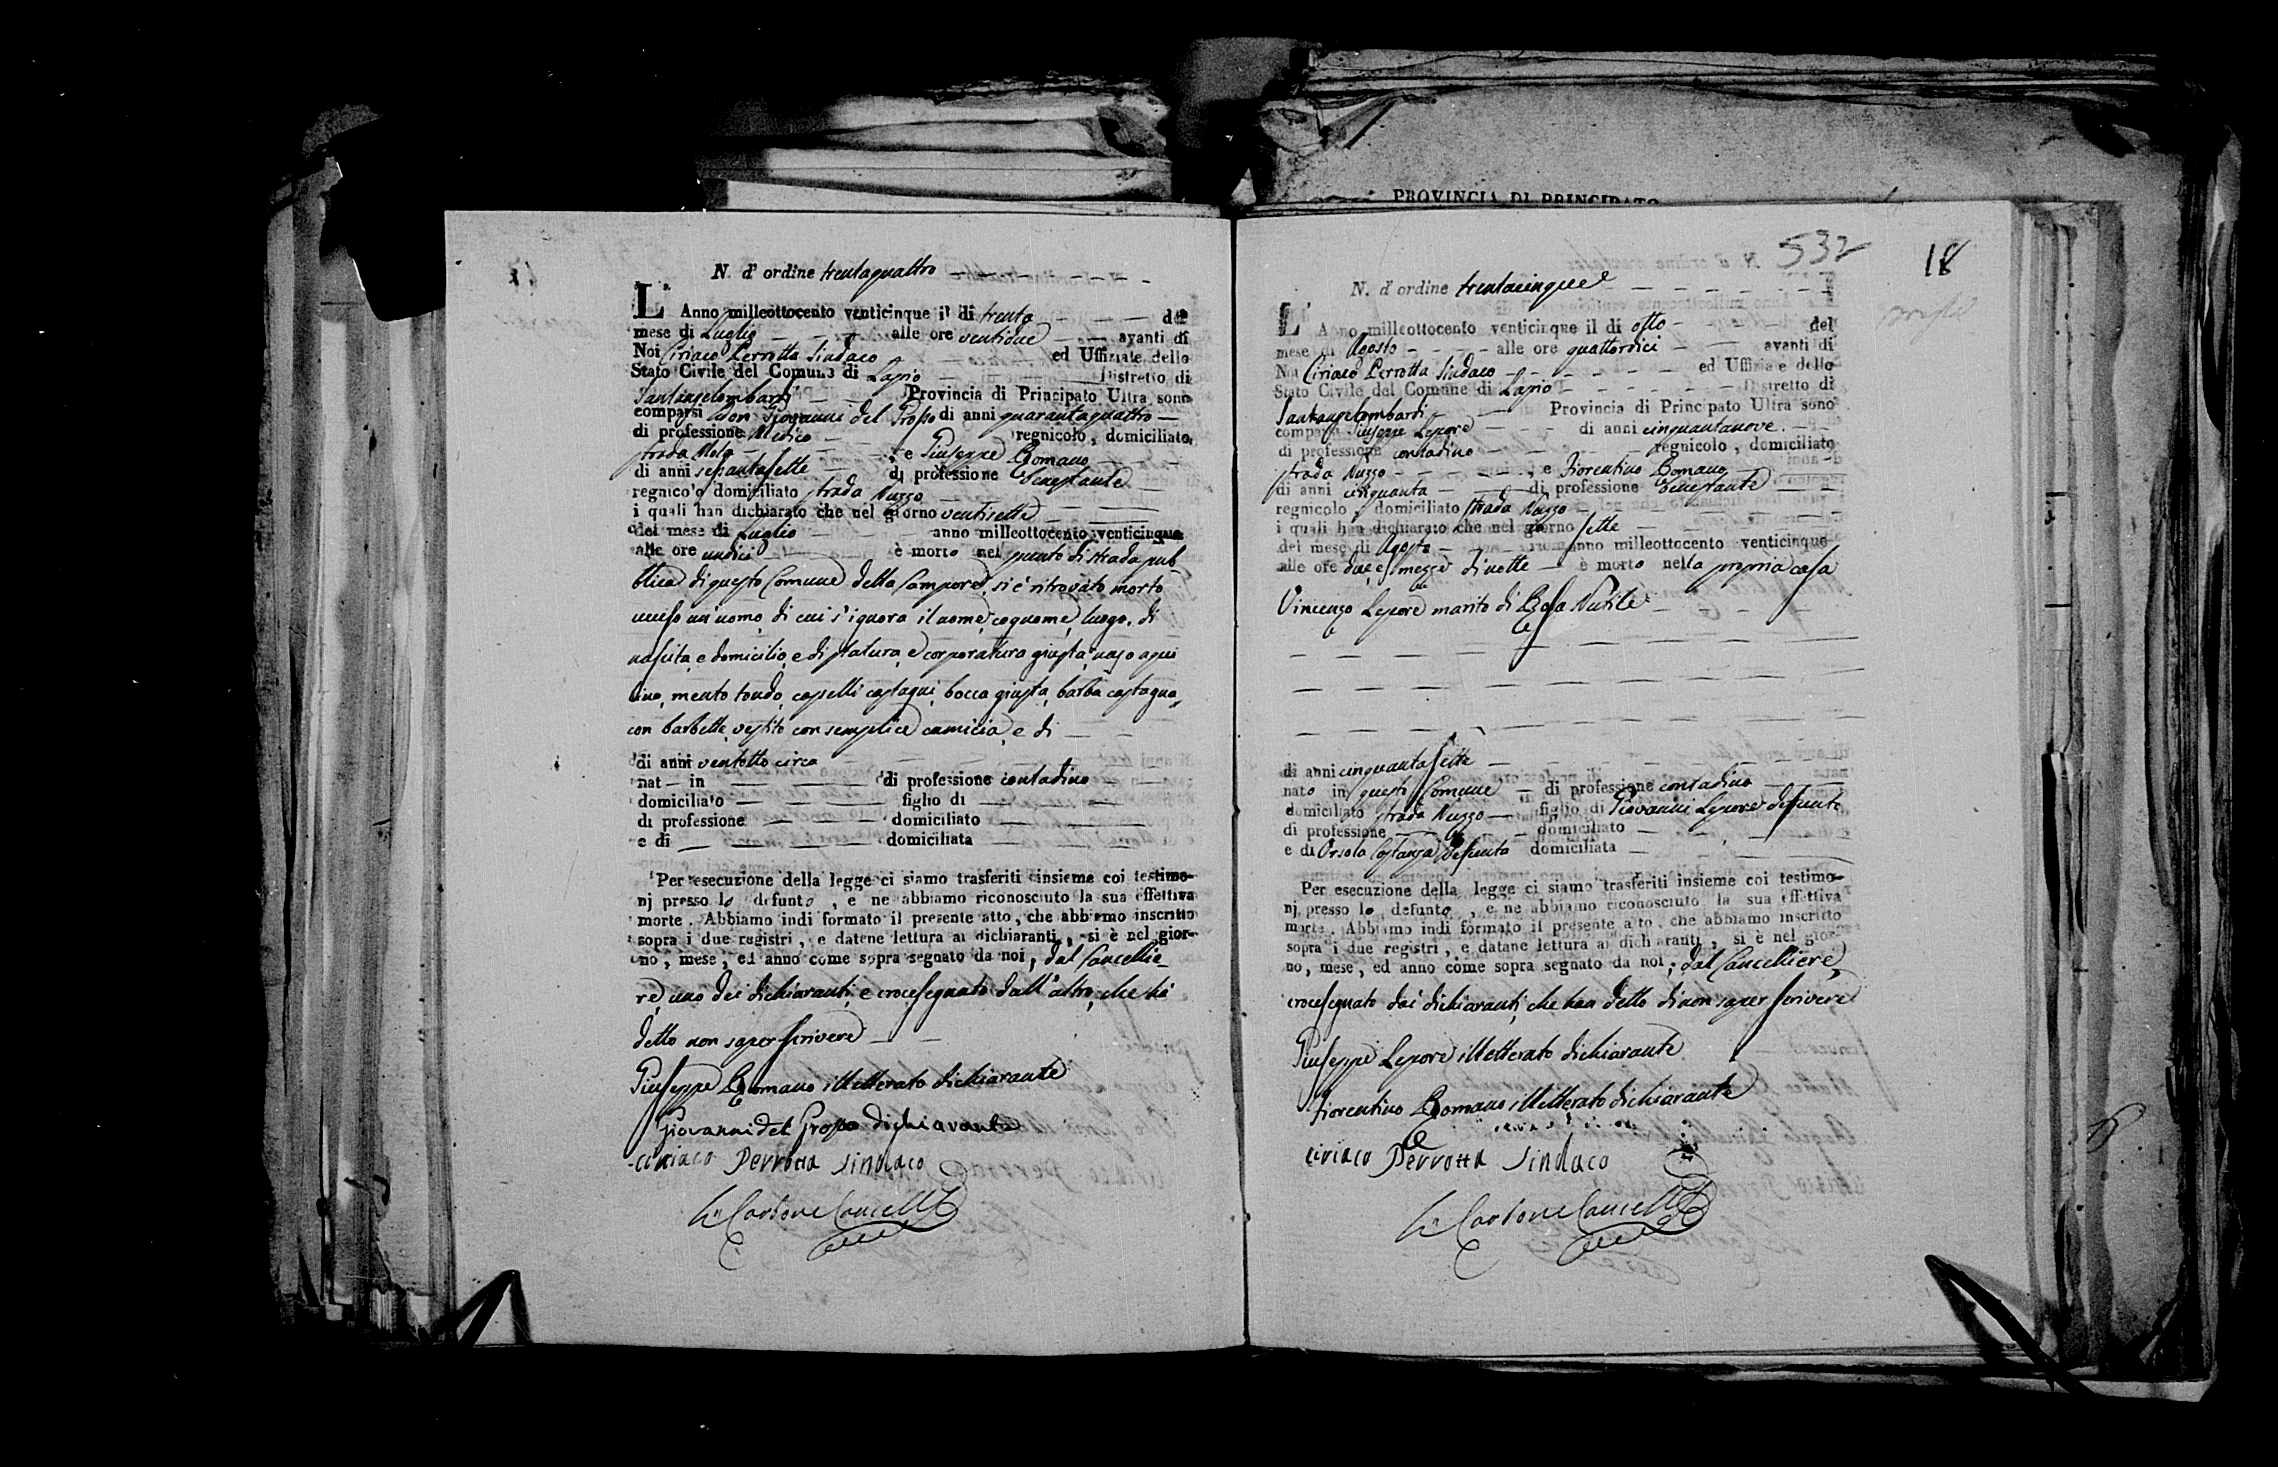 PROVINCIA DI PRINCIPATO
N. d' ordine trentaquattro
L' Anno milleottocento venticinque il di trenta del
mese di Luglio alle ore ventidue avanti di
Noi Ciriaco Perrotta Sindaco ed Uffiziale dello
Stato Civile del Comune di Lapio Distretto di
Santangelombardi Provincia di Principato Ultra sono
comparsi Don Giovanni del Grosso di anni quarantaquattro
di professione Medico regnicolo, domiciliato
strada Mola, e Giuseppe Romano
di anni settantasette di professione Benestante
regnicolo domiciliato strada Nuzzo
i quali han dichiarato che nel giorno ventisette
del mese di Luglio anno milleottocento venticinque
alle ore undici è morto nel punto di strada pub
blica di questo Comune detta Campore, si è ritrovato morto
ucciso un uomo di cui s'ignora il nome, cognome, luogo di
nascita, e domicilio, e di statura, e corporatura giusta, naso aqui
lino, mento tondo, capelli castagni, bocca giusta, barba castagna,
con barbette, vestito con semplice camicia, e di
di anni ventotto circa
nat in di professione contadino
domiciliato figlio di
di professione domiciliato
e di domiciliata
Per esecuzione della legge ci siamo trasferiti insieme coi testimo-
nj presso lo defunto, e ne abbiamo riconosciuto la sua effettiva
morte. Abbiamo indi formato il presente atto, che abbiamo inscritto
sopra i due registri, e datene lettura ai dichiaranti, si è nel gior-
no, mese, ed anno come sopra segnato da noi, dal Cancellie
re, uno dei dichiaranti, e crocesegnato dall'altro, che hà
detto non saper scrivere
Giuseppe Romano illetterato dichiarante
Giovanni del Grosso dichiarante
Ciriaco Perrotta Sindaco
Carbone Cancell
532
18
N. d' ordine trentacinque
L' Anno milleottocento venticinque il di otto del
mese di Agosto alle ore quattordici avanti di
Noi Ciriaco Perrotta Sindaco ed Uffiziale dello
Stato Civile del Comune di Lapio Distretto di
Santangelombardi Provincia di Principato Ultra sono
comparsi Giuseppe Lepore di anni cinquantanove.
di professione contadino regnicolo, domiciliato
strada Nuzzo, e Fiorentino Romano
di anni cinquanta di professione Benestante
regnicolo, domiciliato strada Nuzzo
i quali han dichiarato che nel giorno sette
del mese di Agosto anno milleottocento venticinque
alle ore due, e mezza di notte è morto nella propria casa
Vincenzo Lepore marito di Rosa Nutile
di anni cinquantasette
nato in questo Comune di professione contadino
domiciliato strada Nuzzo figlio di Giovanni Lepore defunto
di professione domiciliato
e di Orsola Costanza defunta domiciliata
Per esecuzione della legge ci siamo trasferiti insieme coi testimo-
nj presso lo defunto, e ne abbiamo riconosciuto la sua effettiva
morte. Abbiamo indi formato il presente atto, che abbiamo inscritto
sopra i due registri, e datane lettura ai dichiaranti, si è nel gior-
no, mese, ed anno come sopra segnato da noi, dal Cancelliere,
crocesegnato dai dichiaranti, che han detto di non saper scrivere
Giuseppe Lepore illetterato dichiarante
Fiorentino Romano illetterato dichiarante
Ciriaco Perrotta Sindaco
Carbone Cancell